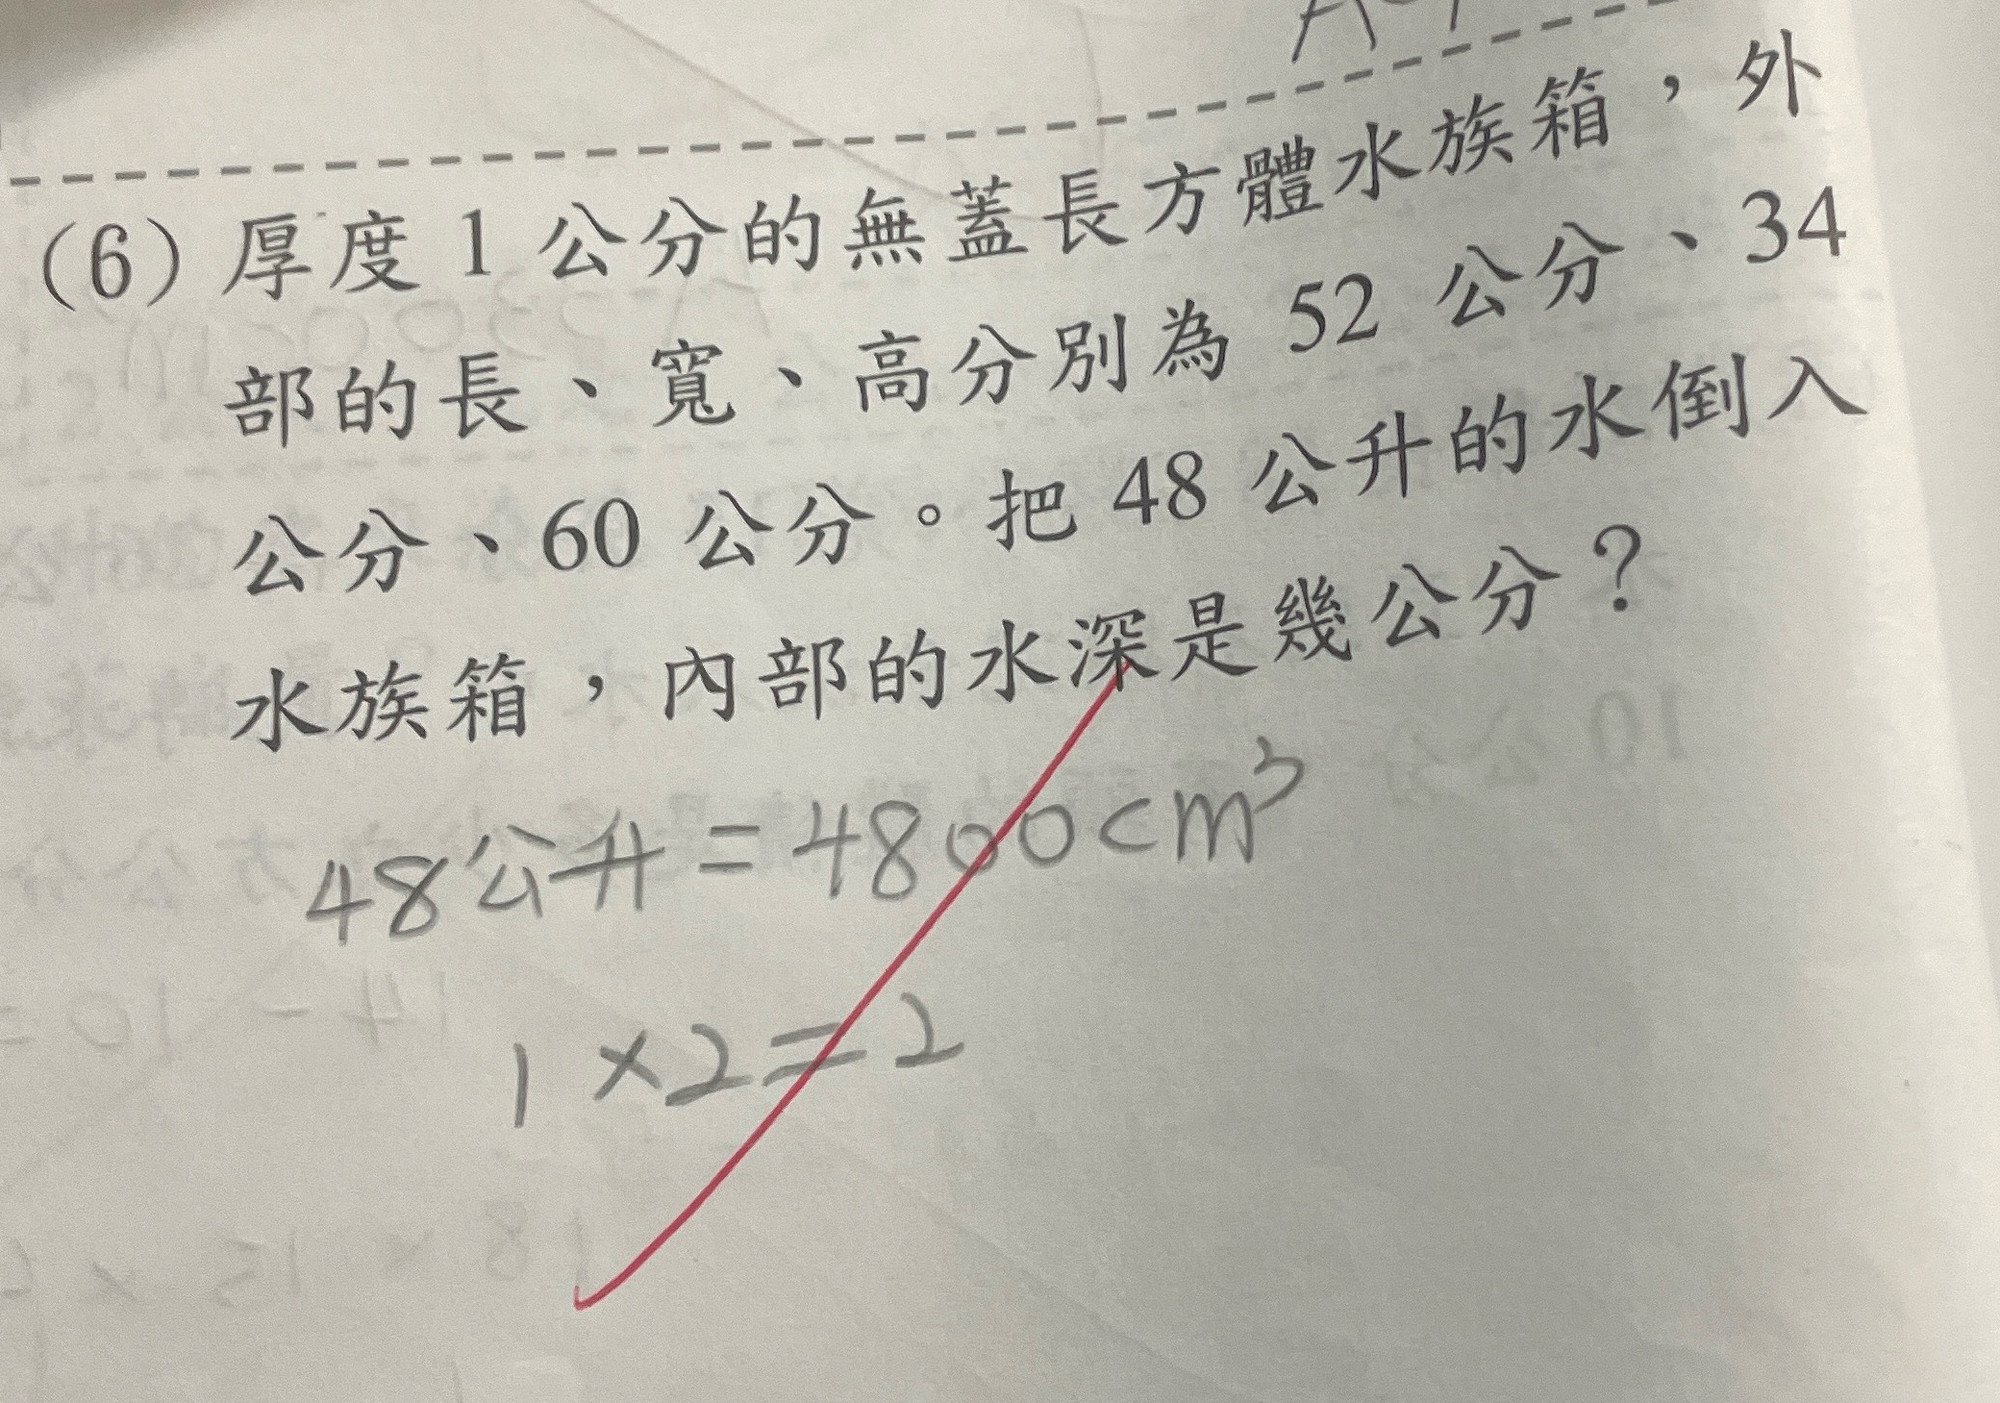 (6) 厚度 1 公分的無蓋長方體水族箱，外
部的長、寬、高分別為 52 公分、34
公分、60 公分。把 48 公升的水倒入
水族箱，內部的水深是幾公分？
48公升=4800cm³
1×2=2